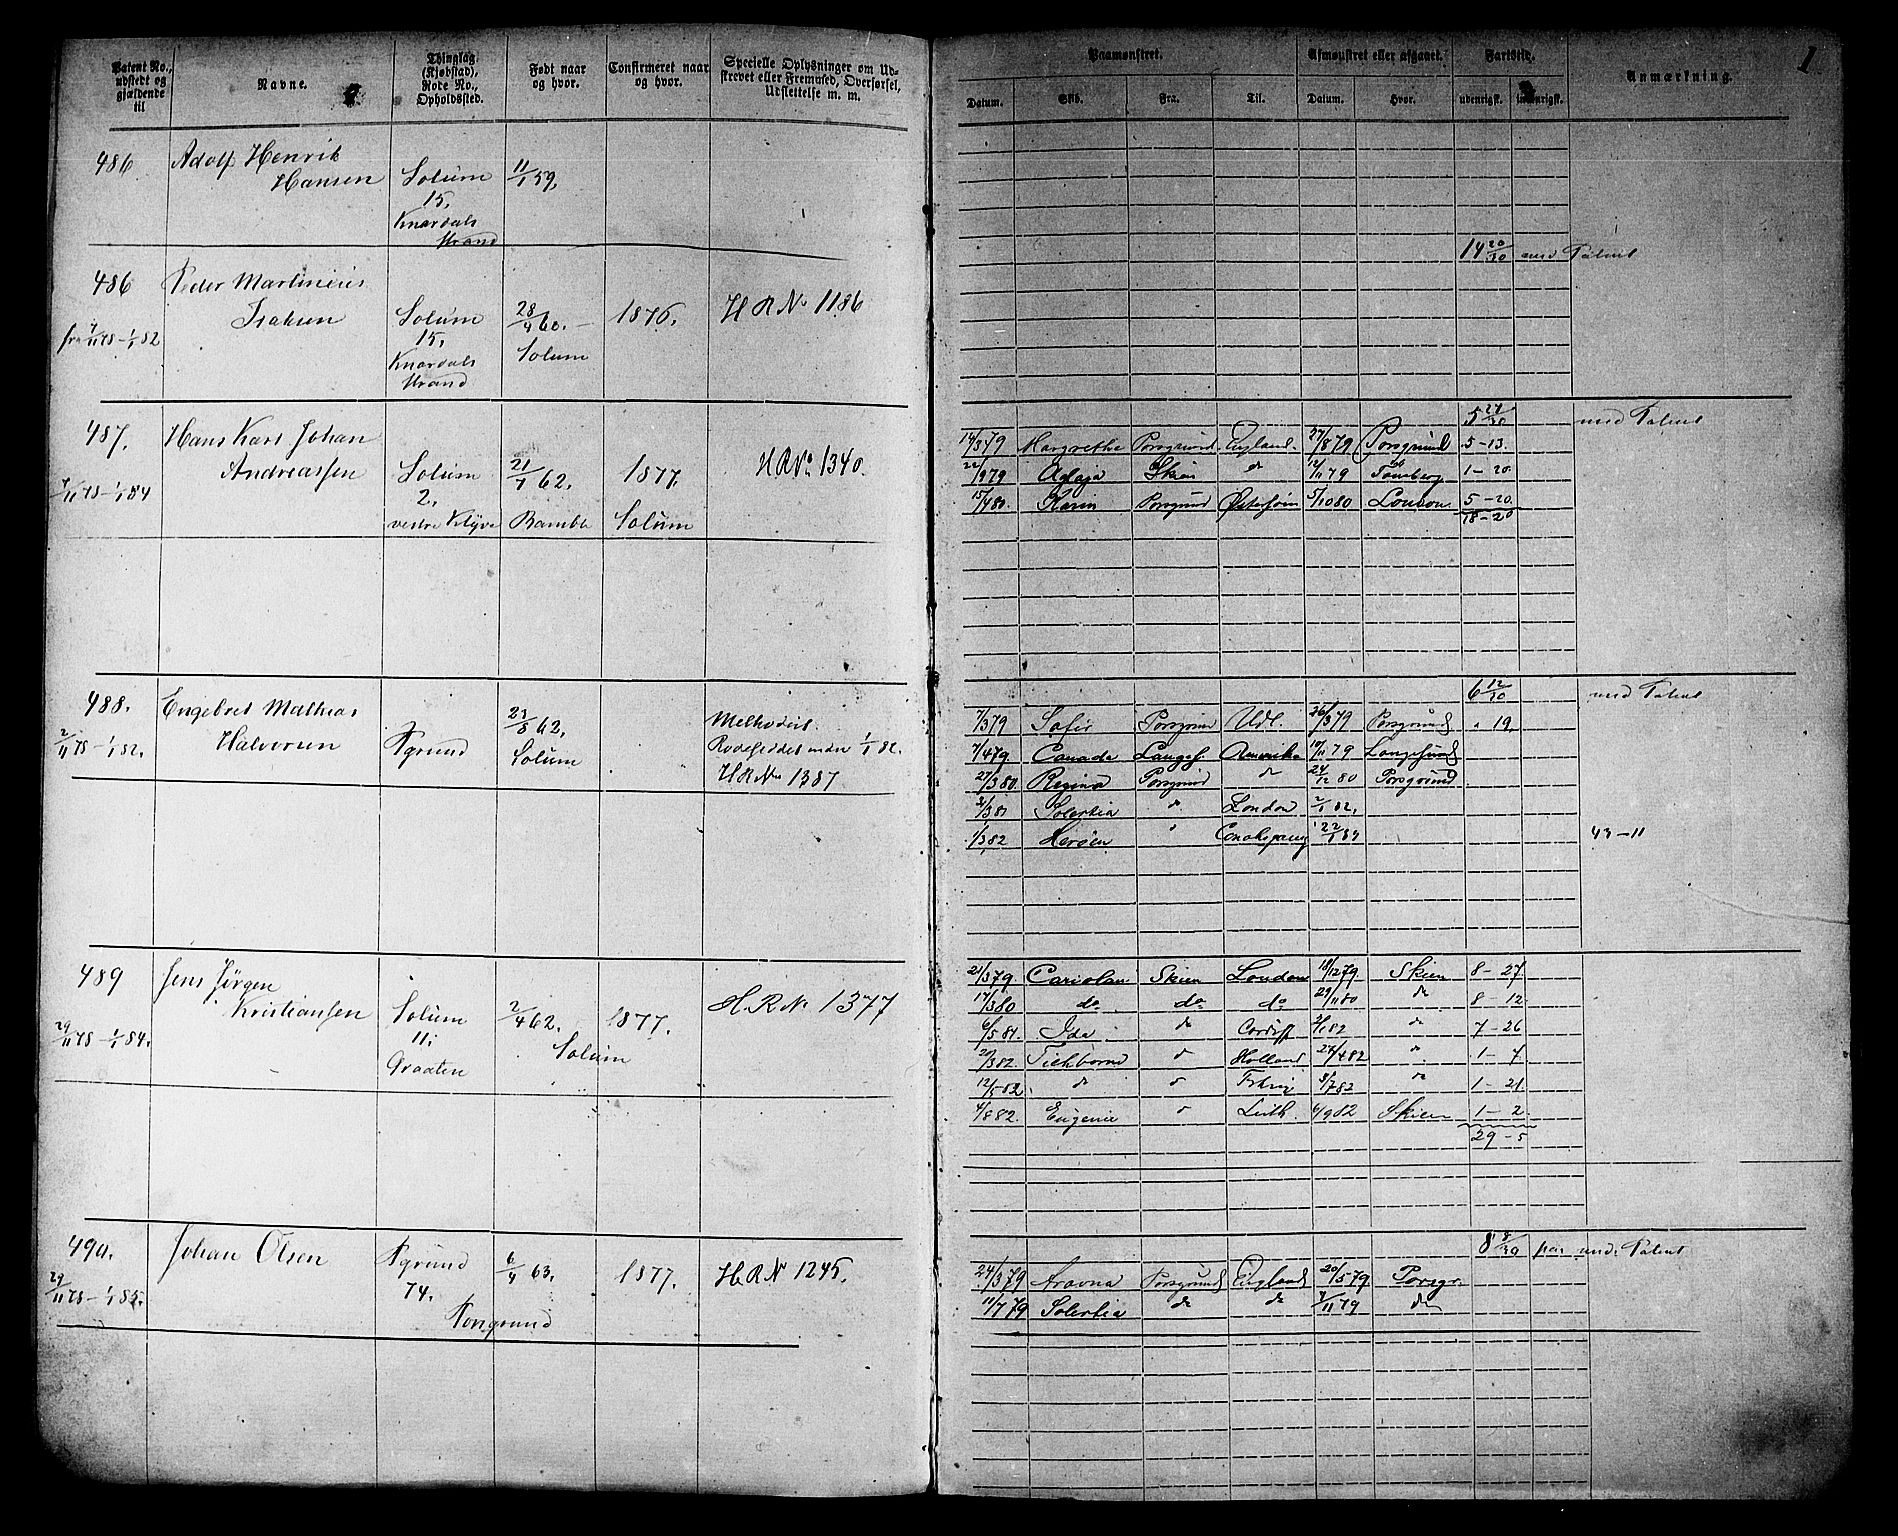 Patent No., udstedt og gjældende til
Navne.
Thinglag. (Kjøbstad), Rode No., Opholdssted.
Født naar og hvor.
Confirmeret naar og hvor.
Specielle Oplysninger om Udskrevet eller Fremmed, Overførsel, Udslettelse m. m.
486
Adolf Henrik
Hansen
Solum
15,
Knardals
strand
11/1 59,
486
fra 7/11 78 – 1/1 82
Peder Martinius
Isaksen
Solum
15,
Knardals
Strand
28/4 60. –
Solum
1876.
H R No 1186
487.
7/11 78 – 1/1 84
Hans Karl Johan
Andreassen
Solum
2,
vestre Klyve
21/7 62,
Bamble
1877.
Solum
H R No 1340.
488.
2/11 78 – 1/1 82.
Engebret Mathias
Halvorsen
Pgrund
23/5 62,
Solum
Methodist.
Rodefeddet under 1/1 82.
H R No 1387
489
29/11 78 – 1/1 84.
Jens Jørgen
Kristiansen
Solum
11,
Graaten
2/4 62.
Solum
1877.
H. R. No 1377
490.
29/11 78 – 1/1 85.
Johan Olsen
Pgrund
74.
Porsgrund
6/4 63.
1877.
H R No 1245.
1
Paamønstret.
Afmønstret eller afgaaet.
Fartstid.
Anmærkning.
Datum.
Skib.
Fra.
Til.
Datum.
Hvor.
udenrigsk.
indenrigsk.
14 20/30 med Patent
5 27/30 med Patent
14/3 79 Margrethe Porsgrund England. 27/8 79 Porsgrund 5 – 13.
22/9 79 Aglaja Skien do 12/11 79 Tønsberg 1 – 20.
15/4 80. Karin Porsgrund Østersøen 5/10 80 London. 5 – 20.
18 – 20
6 12/30 med Patent
7/3 79 Sofie Porsgrund Udl. 26/3 79 Porsgrund " 19,
7/4 79. Canada Langes. Amerika 10/11 79 Langesund
27/3 80. Regina Porsgrund do 24/12 80 Porsgrund
2/3 81 Solertia " London 2/1 82.
1/3 82 Herøen " 22/1 84
43 – 11
21/3 79. Cariolan Skien London 18/12 79. Skien 8 – 27
17/3 80 do. do do 29/11 80 do 8 – 12.
6/5 81. Ida do Cardiff 2/1 82 do 7 – 26
20/3 82. Tichborne do Holland 27/4 82 do 1 – 7.
12/5 82. do do 8/7 82 do 1 – 21.
4/8 82. Eugenie do Leith. 6/9 82 Skien 1 – 2.
29 – 5
8 8/30 med Patent
24/3 79 Aravna Porsgrund England 20/5 79. Porsgr.
11/7 79 Solertia do do 7/11 79 do